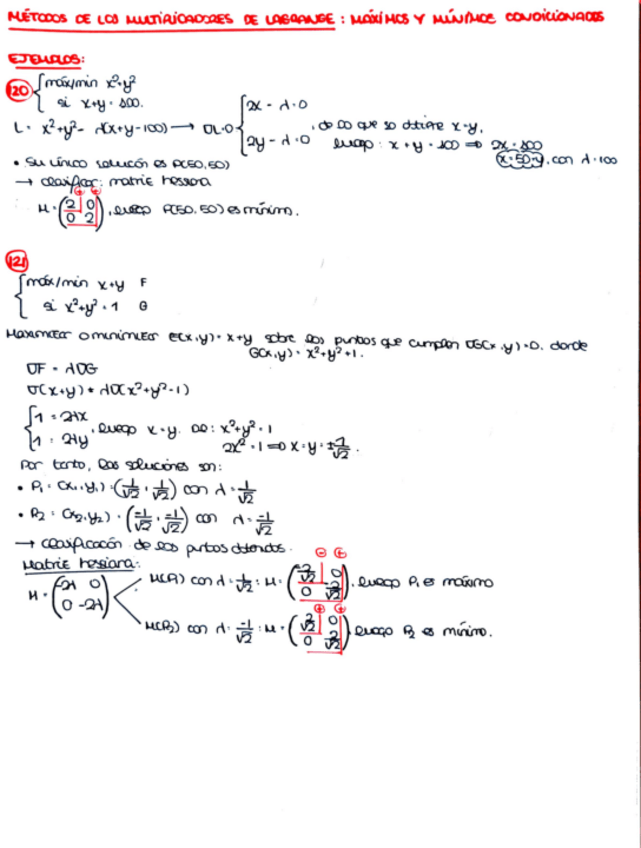 MÉTODOS DE LOS MULTIPLICADORES DE LAGRANGE: MÁXIMOS Y MÍNIMOS CONDICIONADOS
EJEMPLOS:
120 { máx/min x²+y²
si x+y=100.
L = x²+y² - λ(x+y-100) → ∇L=0 { 2x - λ=0
2y - λ=0 , de lo que se obtiene x=y,
luego: x+y=100 ⇒ 2x=100
x=50=y, con λ=100
• Su única solución es P(50,50)
→ clasificar: matriz hessiana
⊕ ⊕
H = (2 0
0 2), luego P(50,50) es mínimo.
121
{ máx/min x+y F
si x²+y²=1 G
Maximizar o minimizar F(x,y)=x+y sobre los puntos que cumplen ∇G(x,y)=0, donde
G(x,y)=x²+y²+1.
∇F = λ∇G
∇(x+y) = λ∇(x²+y²-1)
{ 1=2λx
1=2λy , luego x=y. De: x²+y²=1
2x²=1 ⇒ x=y=±1/√2.
Por tanto, las soluciones son:
• P₁=(x₁,y₁)=(1/√2, 1/√2) con λ=1/√2
• P₂=(x₂,y₂)=(-1/√2, -1/√2) con λ=-1/√2
→ clasificación de los puntos obtenidos.
Matriz hessiana:
⊖ ⊕
H(P₁) con λ=1/√2: H=(-2/√2 0
0 -2/√2), luego P₁ es máximo
H = (-2λ 0
0 -2λ)
⊕ ⊕
H(P₂) con λ=-1/√2: H=(2/√2 0
0 2/√2), luego P₂ es mínimo.